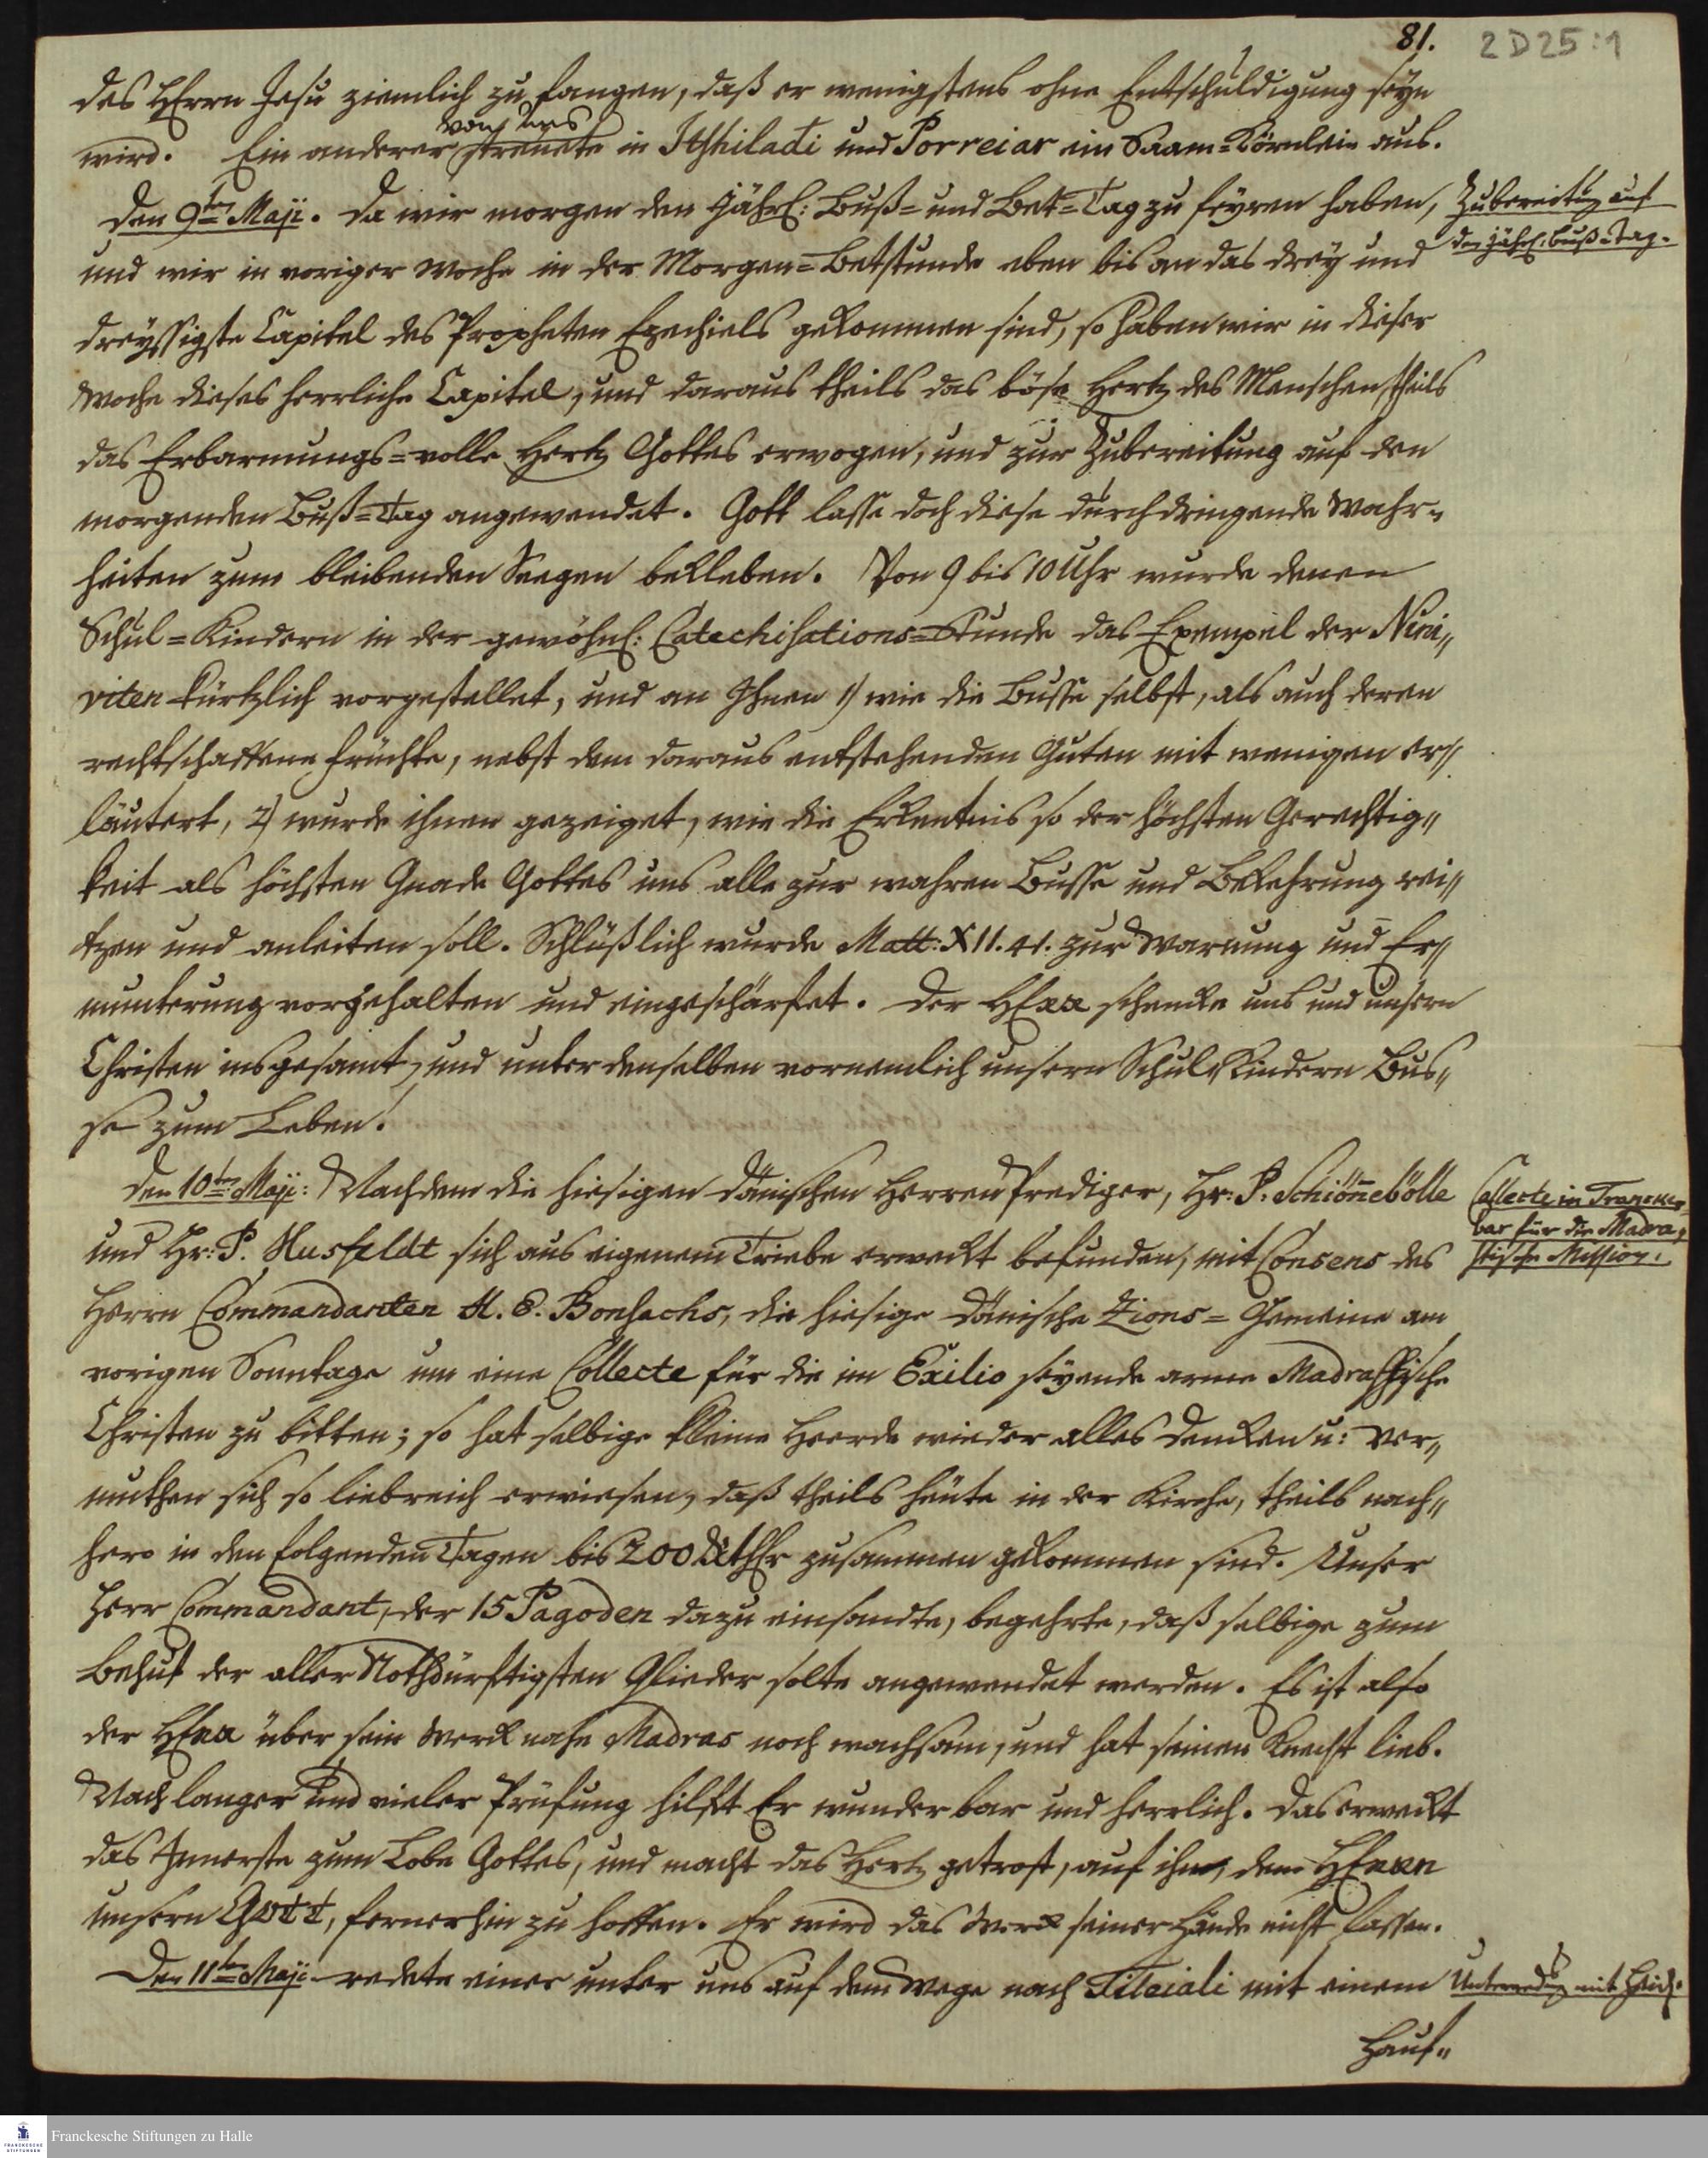 81. 2 D 25:1
des HErrn Jesu ziemlich zu fangen, daß er wenigstens ohne Entschuldigung seyn
von uns
wird. Ein anderer streuete in Itshiladi und Porreiar ein Saam=Körnlein aus.
Den 9ten Maji. Da wir morgen den jährl: Buß= und Bet=Tag zu feyren haben,
Zubereitung auf
den jährl: Buß=Tag.
und wir in voriger Woche in der Morgen=Betstunde eben bis an das drey und
dreyssigste Capitel des Propheten Ezechiels gekommen sind, so haben wir in dieser
Woche dieses herrliche Capitel, und daraus theils das böse Hertz des Menschen, theils
das Erbarmungs=volle Hertz Gottes erwogen, und zur Zubereitung auf den
morgenden Buß=Tag angewendet. Gott lasse doch diese durchdringende Wahr=
heiten zum bleibenden Seegen bekleben. Von 9 bis 10 Uhr wurde denen
Schul=Kindern in der gewöhnl: Catechisations=Stunde das Exempel der Nini„
viten kürtzlich vorgestellet, und an Ihnen 1) wie die Busse selbst, als auch deren
rechtschaffene Früchte, nebst dem daraus entstehenden Guten mit wenigen er„
läutert, 2) wurde ihnen gezeiget, wie die Erkentnis so der höchsten Gerechtig„
keit als höchsten Gnade Gottes uns alle zur wahren Busse und Bekehrung rei„
tzen und anleiten soll. Schlüßlich wurde Matt: XII. 41. zur Warnung und Er„
munterung vorgehalten und eingeschärfet. Der HErr schencke uns und unsern
Christen insgesamt, und unter denselben vornemlich unsern Schul Kindern Bus„
se zum Leben!
Den 10ten Maji: Nachdem die hiesigen Dänischen Herren Prediger, Hr: P. Schiönnebölle
Collecte in Trancke„
bar für die Madra„
stische Mission.
und Hr: P. Husfeldt sich aus eigenem Triebe erweckt befunden, mit Consens des
Herrn Commandanten H. E. Bonsachs, die hiesige Dänische Zions=Gemeine am
vorigen Sonntage um eine Collecte für die im Exilio seyende arme Madrassische
Christen zu bitten; so hat selbige kleine Heerde wieder alles Dencken u: Ver„
muthen sich so liebreich erwiesen, daß theils heute in der Kirche, theils nach„
hero in den folgenden Tagen bis 200 Rthlr zusammen gekommen sind. Unser
Herr Commandant, der 15 Pagoden dazu einsandte, begehrte, daß selbige zum
Behuf der aller Nothdürftigsten Glieder solte angewendet werden. Es ist also
der HErr über sein Werck nahe Madras noch wachsam, und hat seinen Knecht lieb.
Nach langer und vieler Prüfung hilfft Er wunderbar und herrlich. Das erweckt
das Innerste zum Lobe Gottes, und macht das Hertz getrost, auf ihn, dem HErrn
unsern Gott, fernerhin zu hoffen. Er wird das Werck seiner Hände nicht lassen.
Den 11ten Maji redete einer unter uns auf dem Wege nach Tileiali mit einem
Unterredung mit Heid.
Hauf„
Franckesche Stiftungen zu Halle